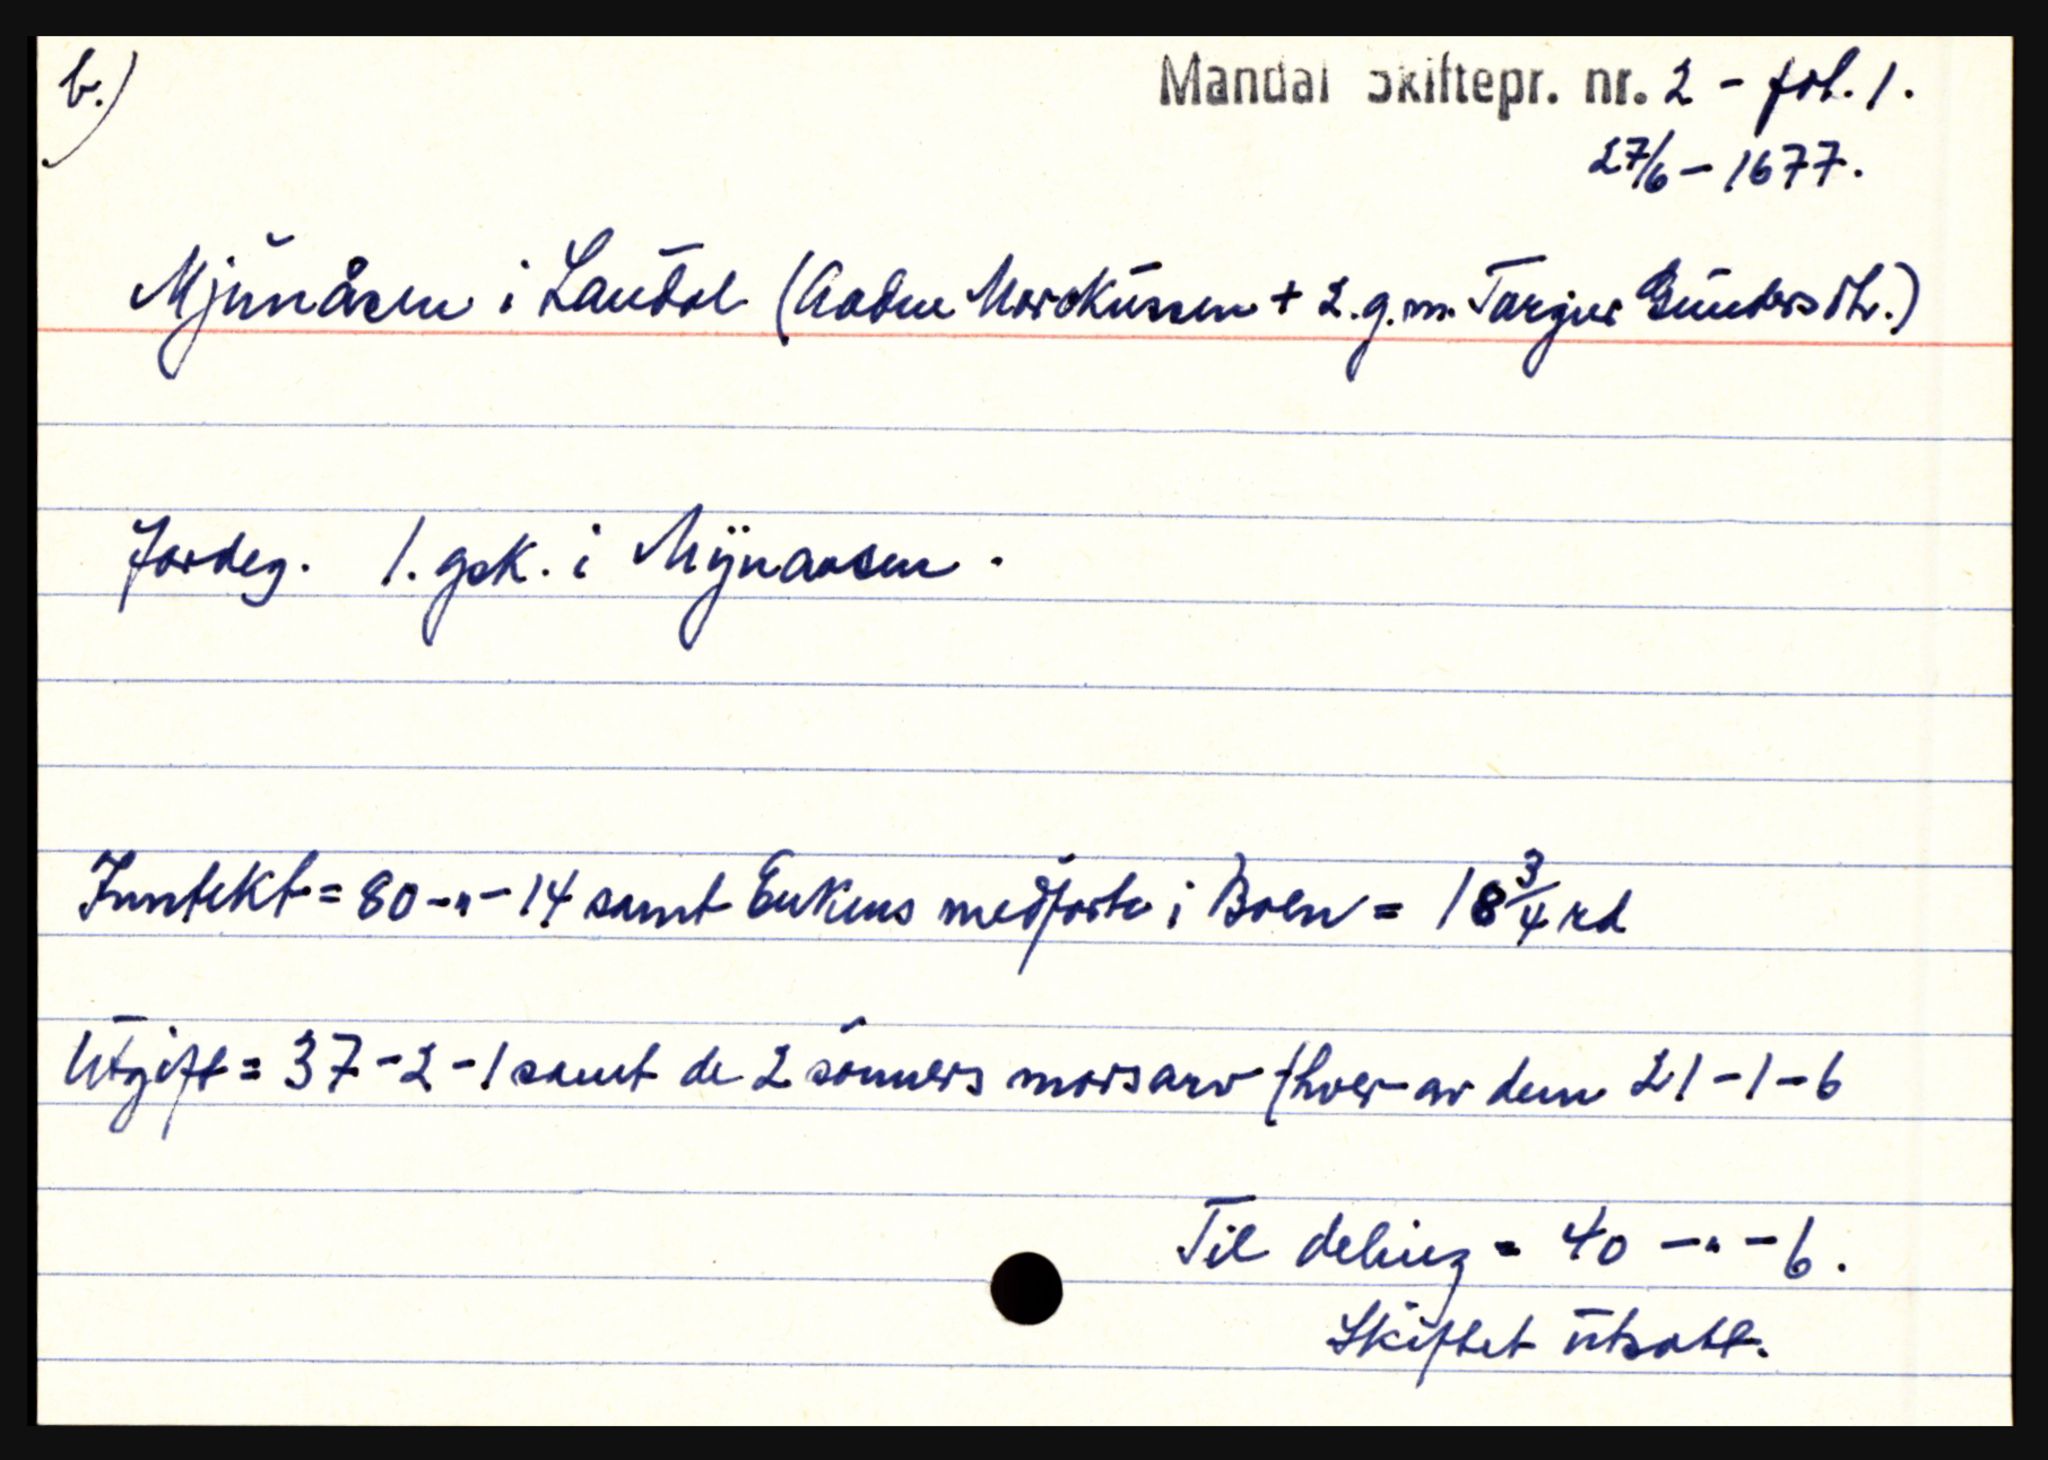 b.)
Mandal Skiftepr. nr. 2 - fol. 1.
27/6 - 1677.
Mjunåsen i Laudal (Aadne Marckussen + 2. g. m. Targier Gundersdtr.)
Jordeg. 1. gsk. i Mÿnaasen.
Inntekt = 80 - " - 14 samt Enkens medførte i Boen = 18 3/4 rd
Utgift = 37 - 2 - 1 samt de 2 sønners morsarv (hver av dem 21 - 1 - 6
Til deling = 40 - " - 6.
Skiftet utsatt.